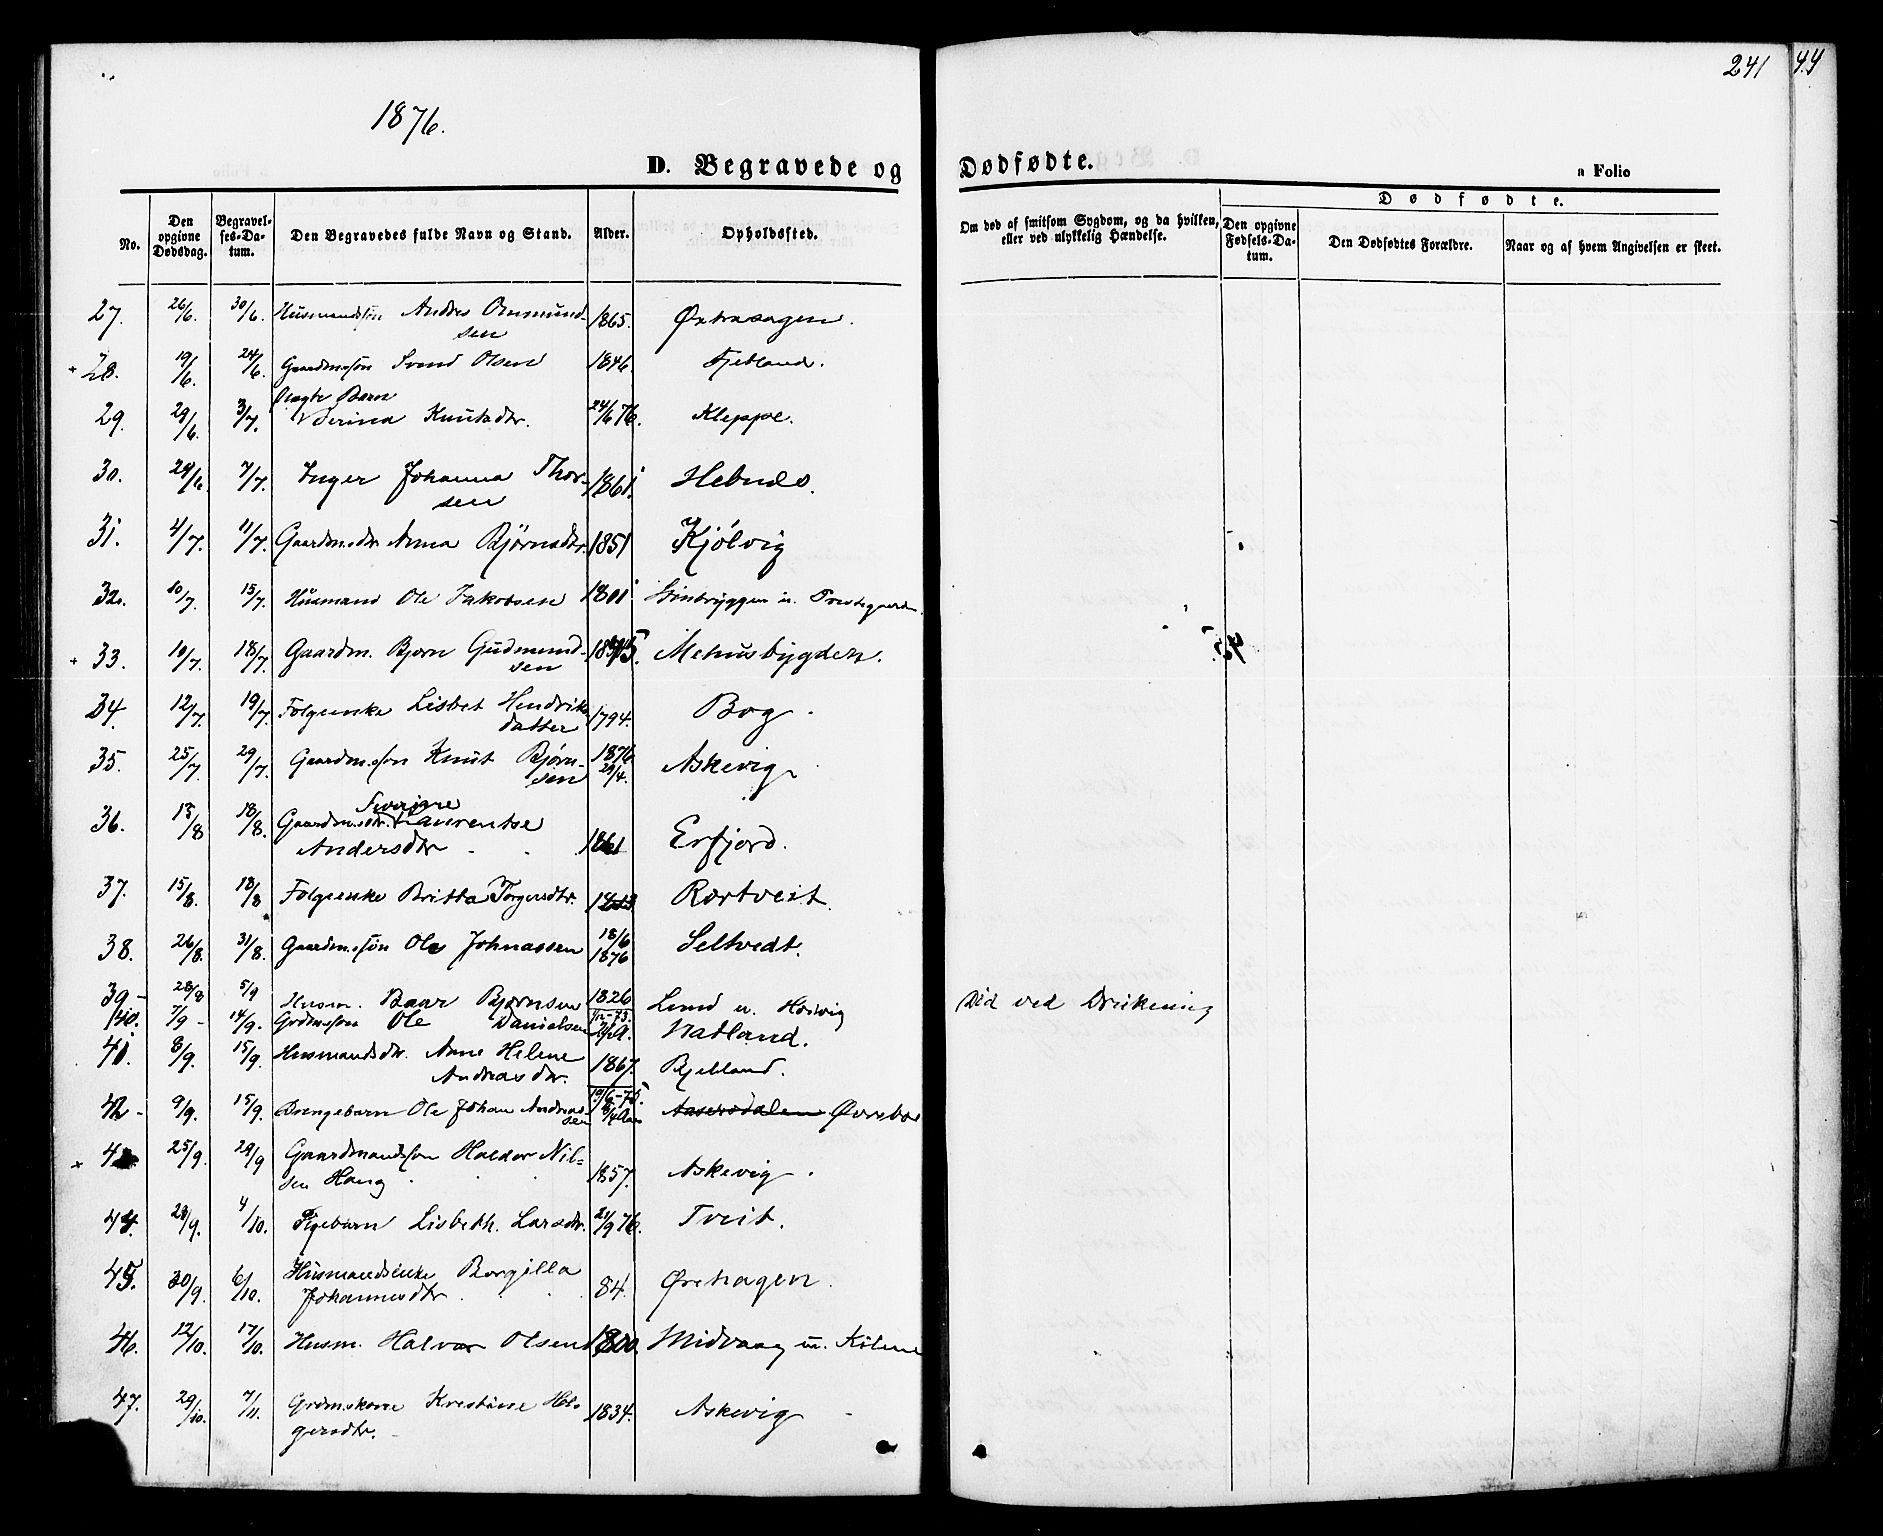 241 44
1876.
D. Begravede og Dødfødte.
a Folio
No.
Den opgivne Dødsdag.
Begravelses-Datum.
Den Begravedes fulde Navn og Stand.
Alder.
Opholdssted.
Om død af smitsom Sygdom, og da hvilken, eller ved ulykkelig Hændelse.
Dødfødte.
Den opgivne Fødsels-Datum.
Den Dødfødtes Forældre.
Naar og af hvem Angivelsen er skeet.
27. 26/6. 30/6. Husmandssøn Andres Ommund-
sen 1865.
+ 28. 19/6. 24/6. Gaardmssøn Svend Olsen 1846. Fjetland.
Uægte Barn
29. 29/6. 3/7. Verina Knutsdtr. 24/6 76. Kleppe.
30. 29/6. 7/7. Inger Johanna Thor-
sen 1861. Hebnes.
31. 4/7. 11/7. Gaardm.dtr Anna Bjørnsdtr. 1851 Kjølvig
32. 10/7. 15/7. Husmand Ole Jakobsen 1801 u. Prestegaarden
+ 33. 10/7. 18/7. Gaardm. Bjørn Gudmund-
sen Mehusbygden.
34. 12/7. 19/7. Folgeenke Lisbet Hendriks
datter 1794. Bog.
35. 25/7. 29/7. Gaardm.søn Knut Bjørn-
sen 1876 29/4. Askevig
36. 15/8 18/8. Gaardmsdtr. Severine Laurentse
Andersdtr 1861 Erfjord.
37. 15/8. 18/8 Folgeenke Britta Torgersdtr. Rørtveit.
38. 26/8. 31/8. Gaardmssøn Ole Johnassen 18/6 1876 Seltvedt.
39- 28/8 5/9 Husm. Baar Bjørnsen 1826 Lund u. Død ved Drukning
40. 7/9- 14/9. Grdmssøn Ole Danielsen Natland.
41. 8/9. 15/9. Husmandsdtr. Anne Helene
Andreasdtr. 1867. Bjelland.
42- 9/9. 15/9. Drengebarn Ole Johan Andreas-
sen 10/6-75. Øvrebøe
+ 25/9. 29/9 Gaardmandssøn Haldor Nil-
sen Haug 1857. Askevig.
44. 28/9. 4/10. Pigebarn Lisbeth Larsdtr. 21/9 76. Tveit.
45. 30/9. 6/10. Husmandsenke Borgilla
Johannesdtr 84. Ørehagen
46. 12/10. 17/10. Husm. Halvar Olsen 1800. Midvaag u.
47. 29/10. 7/11. Grdmskone Kristine Hol-
gersdtr. 1834. Askevig